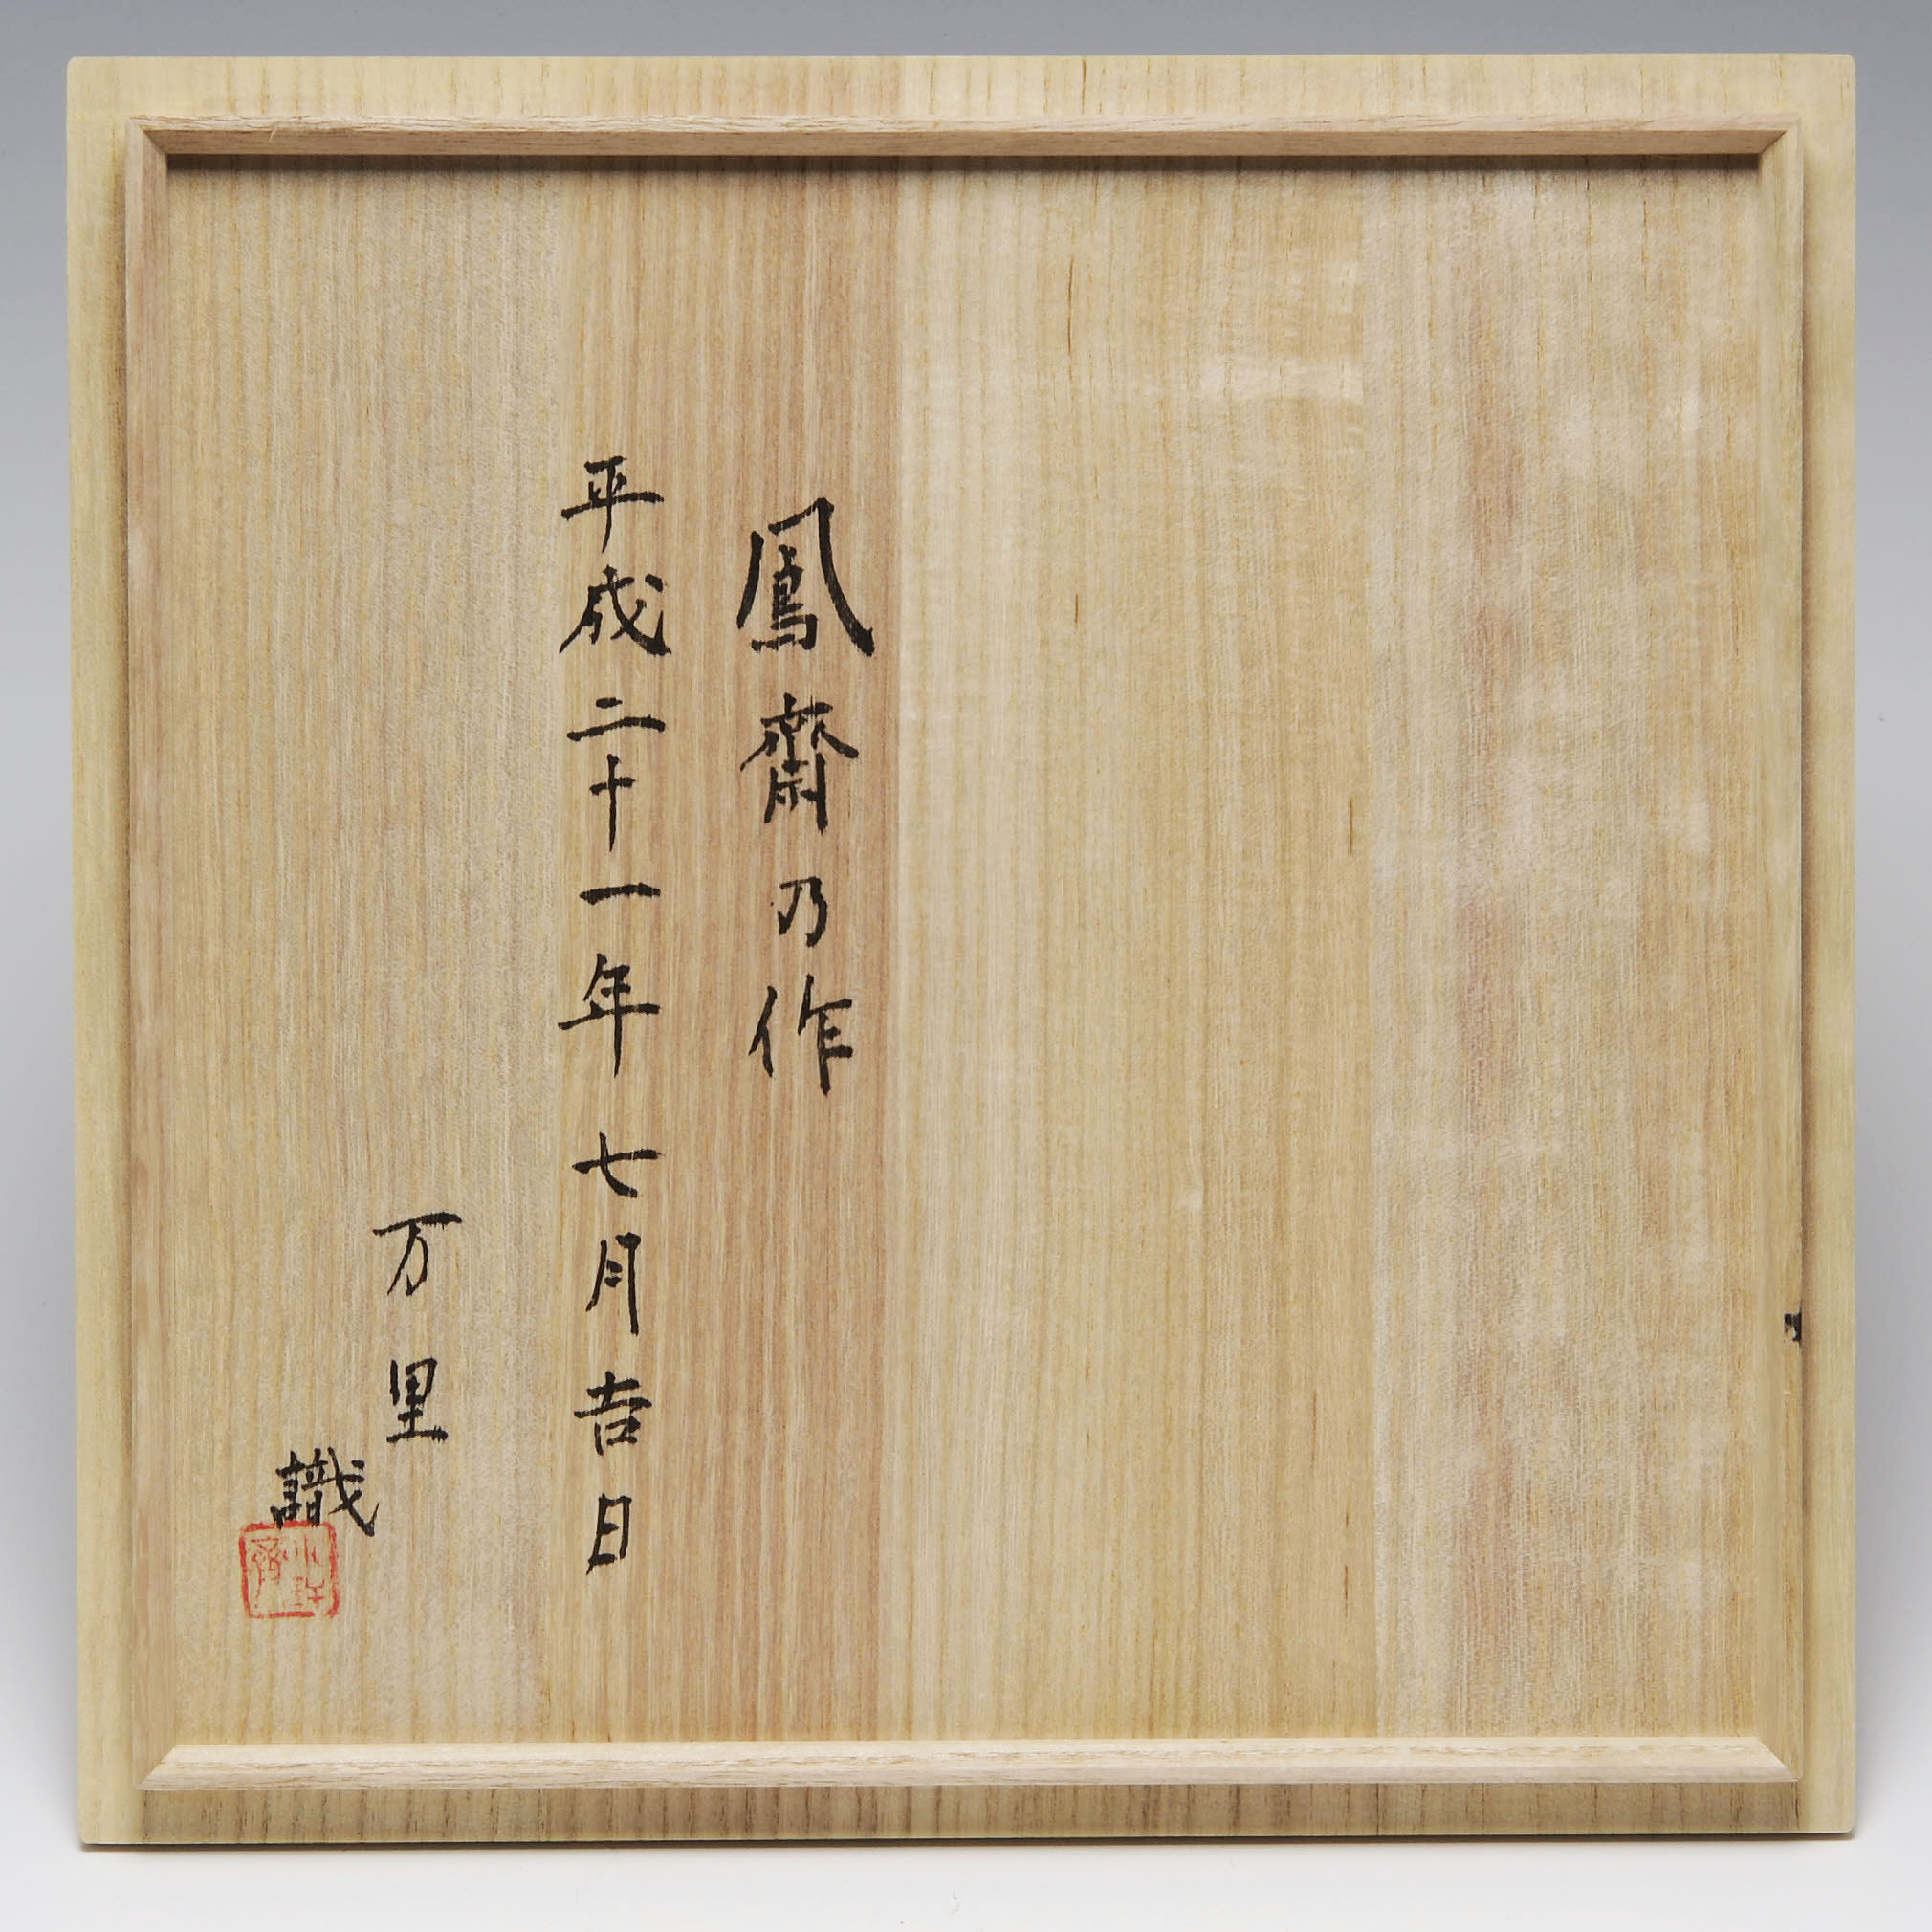 鳳齋乃作
平成二十一年七月吉日
万里
識